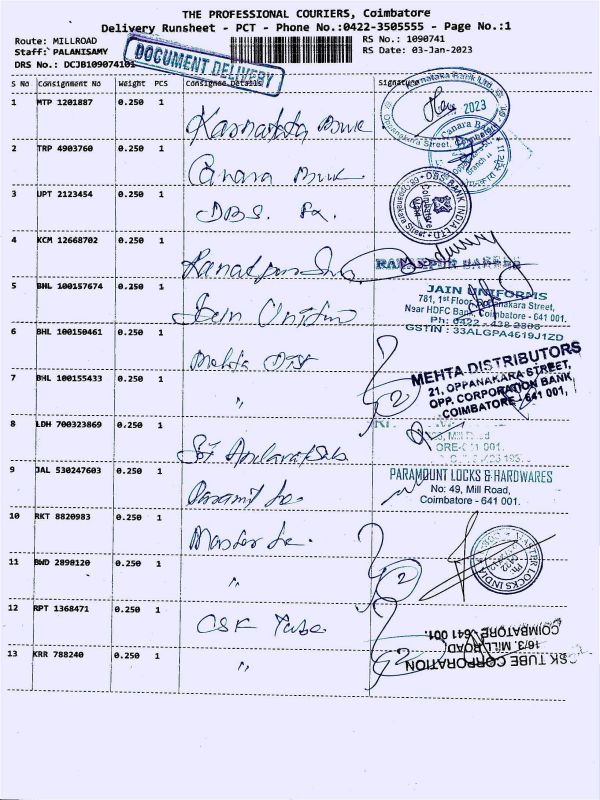 THE PROFESSIONAL COURIERS, Coimbatore
Delivery Runsheet - PCT - Phone No.:0422-3505555 - Page No.:1
Route: MILLROAD RS No.: 1090741
Staff: PALANISAMY RS Date: 03-Jan-2023
DRS No.: DCJB109074101
DOCUMENT DELIVERY
S No Consignment No Weight PCS Consignee Details Signature
1 MTP 1201887 0.250 1 Karnataka Bank
2023
2 TRP 4903760 0.250 1 Canara Bank
Canara Ba
3 UPT 2123454 0.250 1 DBS.
DBS BANK INDIA LTD
Coimbatore
Oppanakara Street
4 KCM 12668702 0.250 1
5 BHL 100157674 0.250 1 Jain Uniform
JAIN UNIFORMS
781, 1st Floor, Oppanakara Street,
Near HDFC Bank, Coimbatore - 641 001.
Ph: 0422 - 438 2808
GSTIN : 33ALGPA4619J1ZD
6 BHL 100150461 0.250 1 Mehta Dist
MEHTA DISTRIBUTORS
21, OPPANAKARA STREET,
OPP. CORPORATION BANK,
COIMBATORE - 641 001,
7 BHL 100155433 0.250 1 "
2
8 LDH 700323869 0.250 1
9 JAL 530247603 0.250 1
PARAMOUNT LOCKS & HARDWARES
No: 49, Mill Road,
Coimbatore - 641 001.
10 RKT 8820983 0.250 1 Master
11 BWD 2890120 0.250 1 "
2
12 RPT 1368471 0.250 1 CSK Tube
CSK TUBE CORPORATION
16/3, MILL ROAD
COIMBATORE - 641 001.
13 KRR 788240 0.250 1 "
2